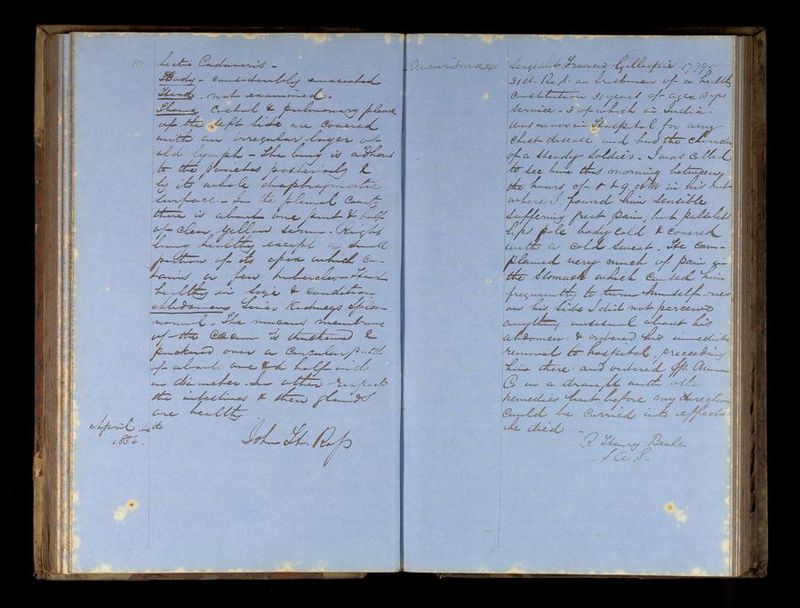 Sectio Cadaveris -
Body - considerably emaciated
Head - not examined.
Thorax Costal & pulmonary pleura
of the left side are covered
with an irregular layer of
old lymph - The lung is adherent
to the posteriorly &
by its whole diaphragmatic
surface - In the pleural cavity
there is about one pint & half
of clear yellow serum. Right
lung healthy except a small
portion of its apex which con-
tains a few tubercles - Heart
healthy in size & condition
Abdomen Liver Kidneys Spleen
normal. The mucous membrane
of the Cæcum is thickened &
puckered over a circular patch
of about one & a half inch
in diameter. In other respects
the intestines & their glands
are healthy
April
186.
John H. Ross
Aneurismus
Sergeant Francis Gillespie 1779
31st Regt. an Irishman of a healthy
constitution 31 years of age 13 yrs
service - 3 of which in India.
was never in Hospital for any
chest disease and had the character
of a steady soldier. I was called
to see him this morning between
the hours of 8 & 9 AM in his hut
where I found him sensible
suffering great pain, but pulseless
lips pale body cold & covered
with a cold sweat. He com-
plained very much of pain in
the stomach which caused him
frequently to turn himself over
on his side I did not perceive
anything unusual about his
abdomen & ordered his immediate
removal to hospital, preceeding
him there and ordered Sp. Ammon
C. in a draught with other
remedies but before my direction
could be carried into effect
he died -
R. Harry Beale
S A S